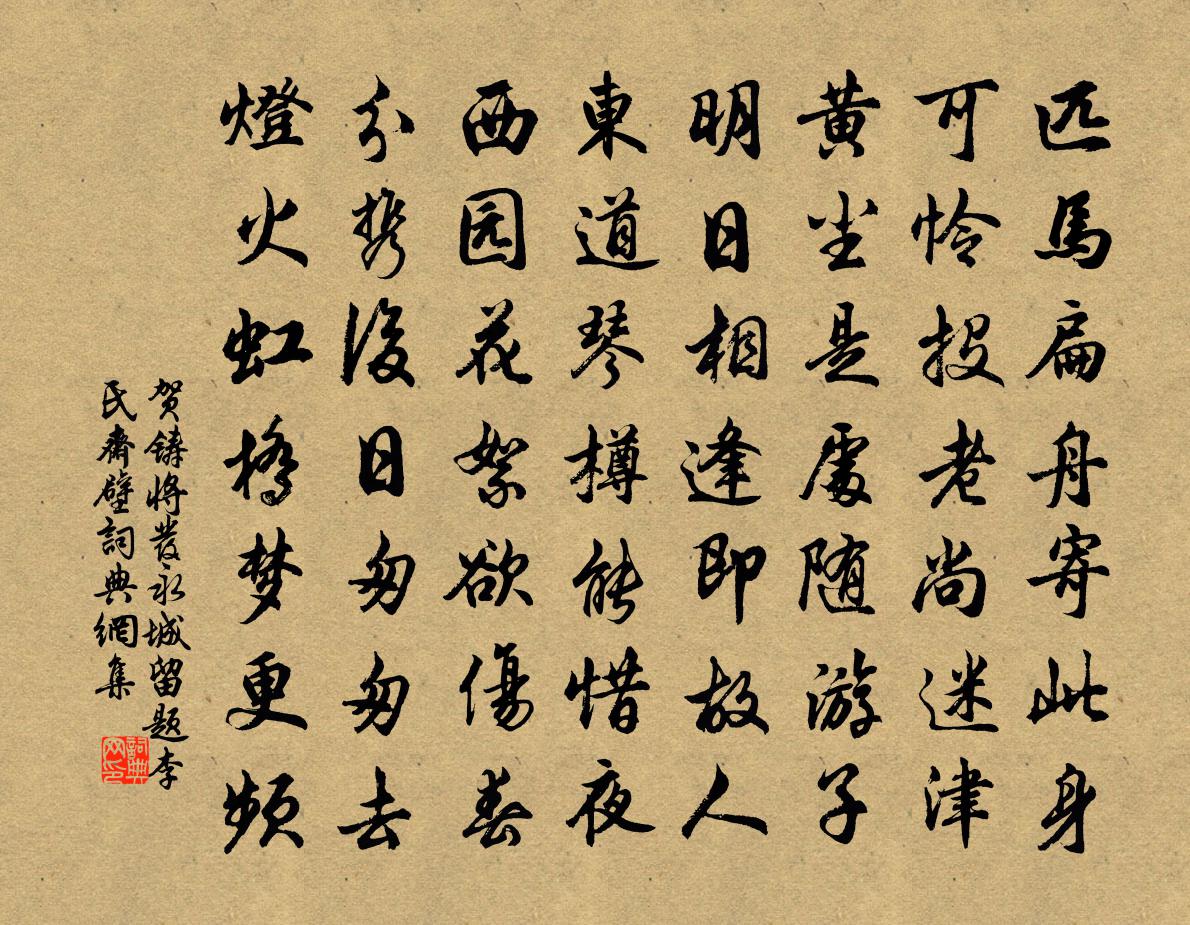 匹馬扁舟寄此身
可怜投老尚迷津
黄尘是處随游子
明日相逢即故人
東道琴樽能惜夜
西园花絮欲傷春
分携後日匆匆去
燈火虹橋梦更頻
贺鑄將發永城留题李
民齋壁詞典網集
詞典
网印